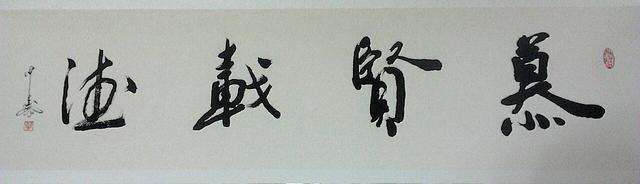 慕賢載德